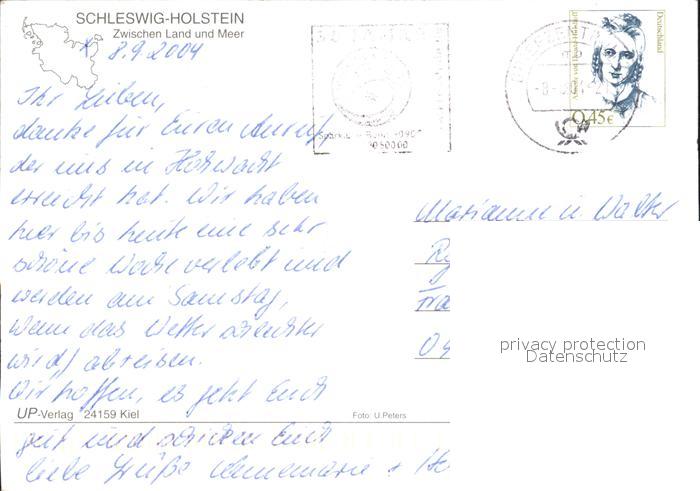 SCHLESWIG-HOLSTEIN
Zwischen Land und Meer
8.9.2004
Ihr Lieben,
danke für Euren Anruf,
der uns in Hohwacht
erreicht hat. Wir haben
hier bis heute eine sehr
schöne Woche verlebt und
werden am Samstag,
wenn das Wetter schlechter
wird, abreisen.
Wir hoffen, es geht Euch
gut und schicken Euch
liebe Grüße Annemarie + 
UP-Verlag 24159 Kiel
Foto: U.Peters
Deutschland
0,45€
Marianne u. Walter
privacy protection
Datenschutz